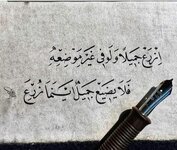 اِزْرَعْ جَمِيلًا وَلَوْ فِي غَيْرِ مَوْضِعِهِ
فَلَا يَضِيعُ جَمِيلٌ أَيْنَمَا زُرِعَ